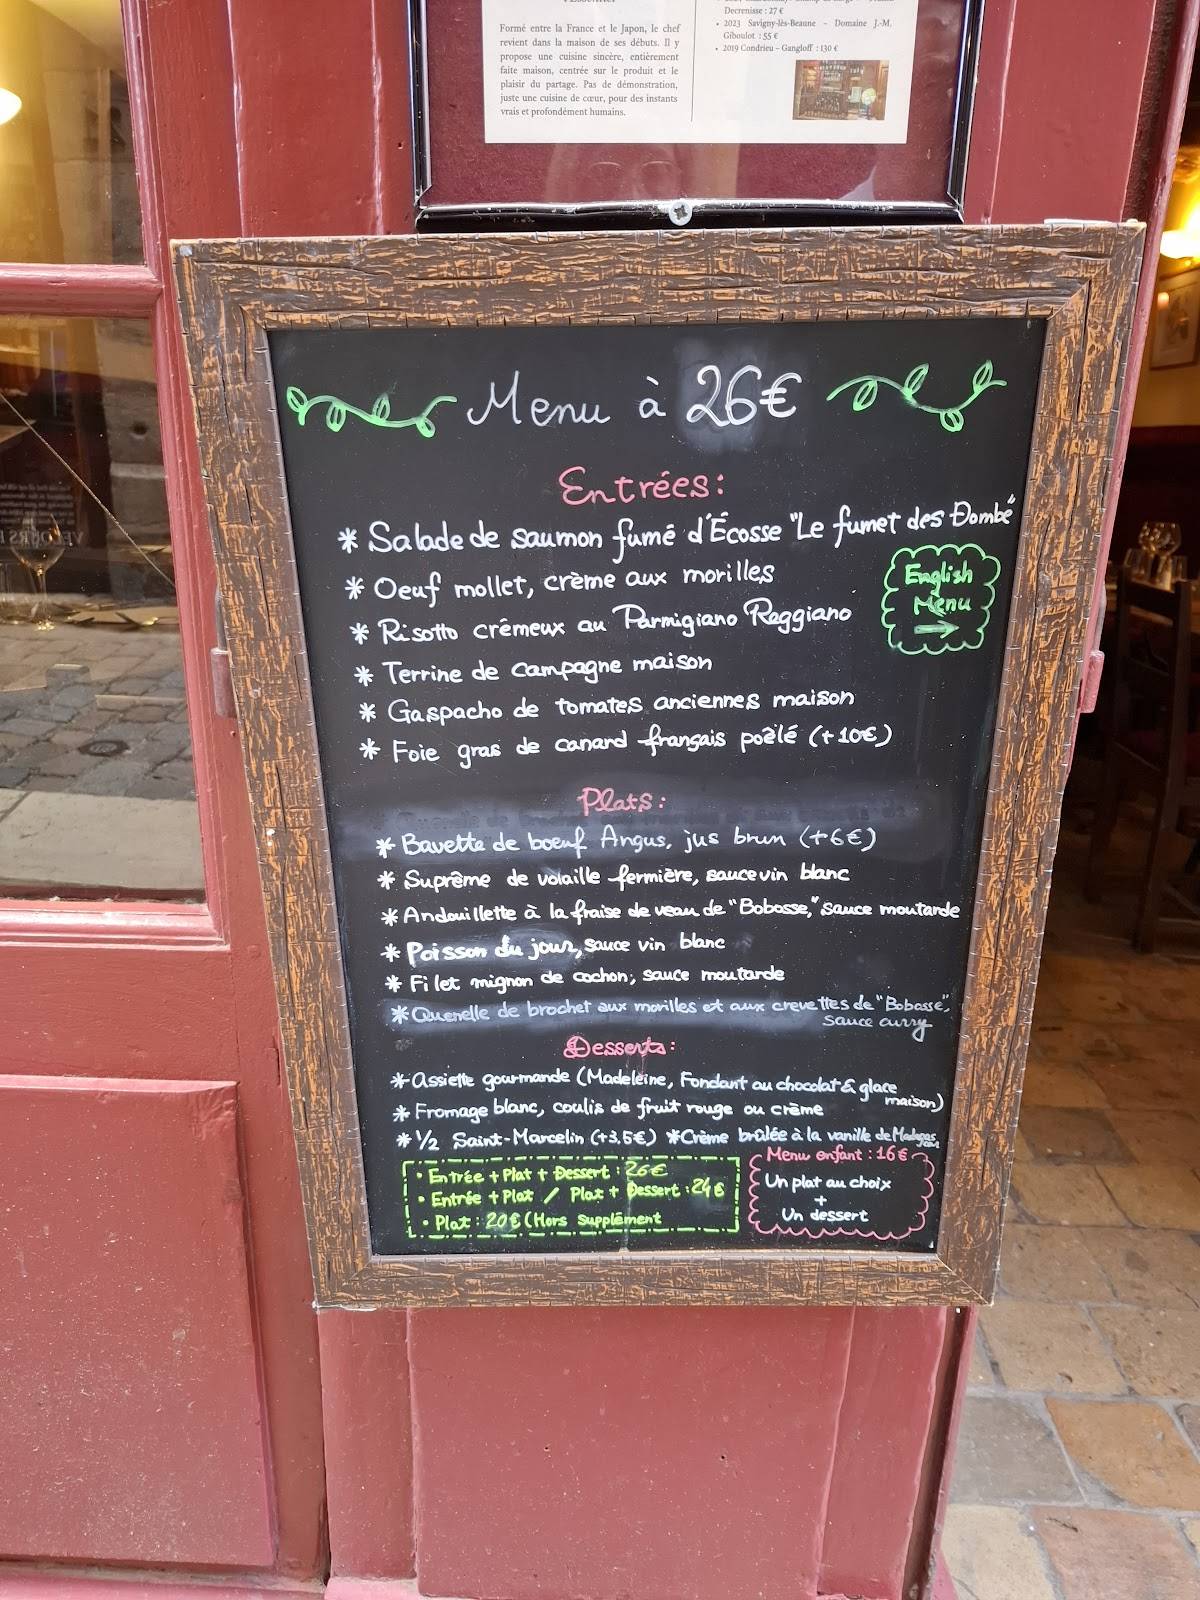 Formé entre la France et le Japon, le chef
revient dans la maison de ses débuts. Il y
propose une cuisine sincère, entièrement
faite maison, centrée sur le produit et le
plaisir du partage. Pas de démonstration,
juste une cuisine de cœur, pour des instants
vrais et profondément humains.
Decrenisse : 27 €
• 2023 Savigny-lès-Beaune – Domaine J.-M.
Giboulot : 55 €
• 2019 Condrieu – Gangloff : 130 €
Menu à 26€
Entrées :
* Salade de saumon fumé d'Écosse "Le fumet des Dombe"
* Oeuf mollet, crème aux morilles
* Risotto crémeux au Parmigiano Reggiano
* Terrine de campagne maison
* Gaspacho de tomates anciennes maison
* Foie gras de canard français poêlé (+10€)
English
Menu
→
Plats :
* Bavette de boeuf Angus, jus brun (+6€)
* Suprême de volaille fermière, sauce vin blanc
* Andouillette à la fraise de veau de "Bobosse," sauce moutarde
* Poisson du jour, sauce vin blanc
* Filet mignon de cochon, sauce moutarde
* Quenelle de brochet aux morilles et aux crevettes de "Bobosse",
sauce curry
Desserts :
* Assiette gourmande (Madeleine, Fondant au chocolat & glace
maison)
* Fromage blanc, coulis de fruit rouge ou crème
* 1/2 Saint-Marcelin (+3,5€) * Crème brûlée à la vanille de Madagascar
• Entrée + Plat + Dessert : 26€
• Entrée + Plat / Plat + Dessert : 24€
• Plat : 20€ (Hors supplément
Menu enfant : 16€
Un plat au choix
+
Un dessert